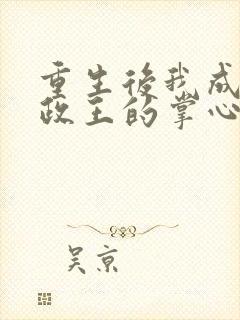 重生後我成
政王的掌心
吴京